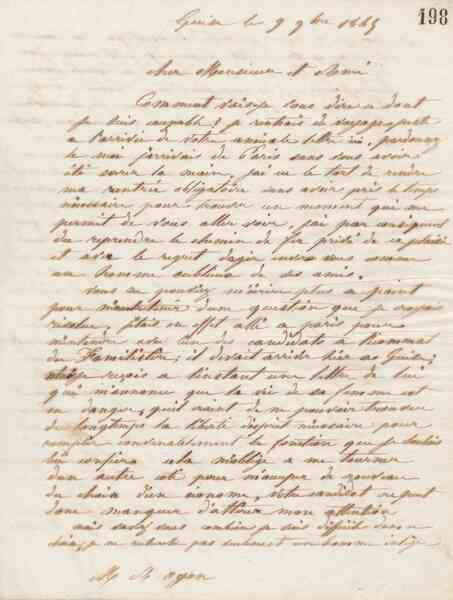 198
Guise le 9 9bre 1865
cher Monsieur et Ami
Comment vais-je vous dire ce dont
je suis coupable! je rentrais de voyage
a l'arrivée de votre amicale lettre ici, pardonnez
le moi j'arrivais de Paris sans vous avoir
été serrer la main, j'ai eu le tort de rendre
ma rentrée obligatoire sans avoir pris le temps
nécessaire pour trouver un moment qui me
permit de vous aller voir, j'ai par conséquent
du reprendre le chemin de fer privé de ce plaisir
et avec le regret d'agir envers vous comme
un homme oublieux de ses amis.
Vous ne pouviez m'écrire plus a point
pour m'entretenir d'une question que je croyais
résolue, j'étais en effet allé a paris pour
m'entendre avec l'un des candidats a l'économat
du Familistère; il devait arriver hier au Guise;
je reçois a l'instant une lettre de lui
qui m'annonce que la vie de sa femme est
en danger, qu'il craint de ne pouvoir trouver
de longtemps la liberté d'esprit nécessaire pour
remplir convenablement la fonction que je voulais
lui confier cela m'oblige a me tourner
d'un autre coté pour m'occuper de nouveau
du choix d'un économe, votre candidat ne peut
donc manquer d'attirer mon attention
mais savez vous combien je suis difficile dans ce
choix, je ne cherche pas seulement un homme intègre
M. A. oyon